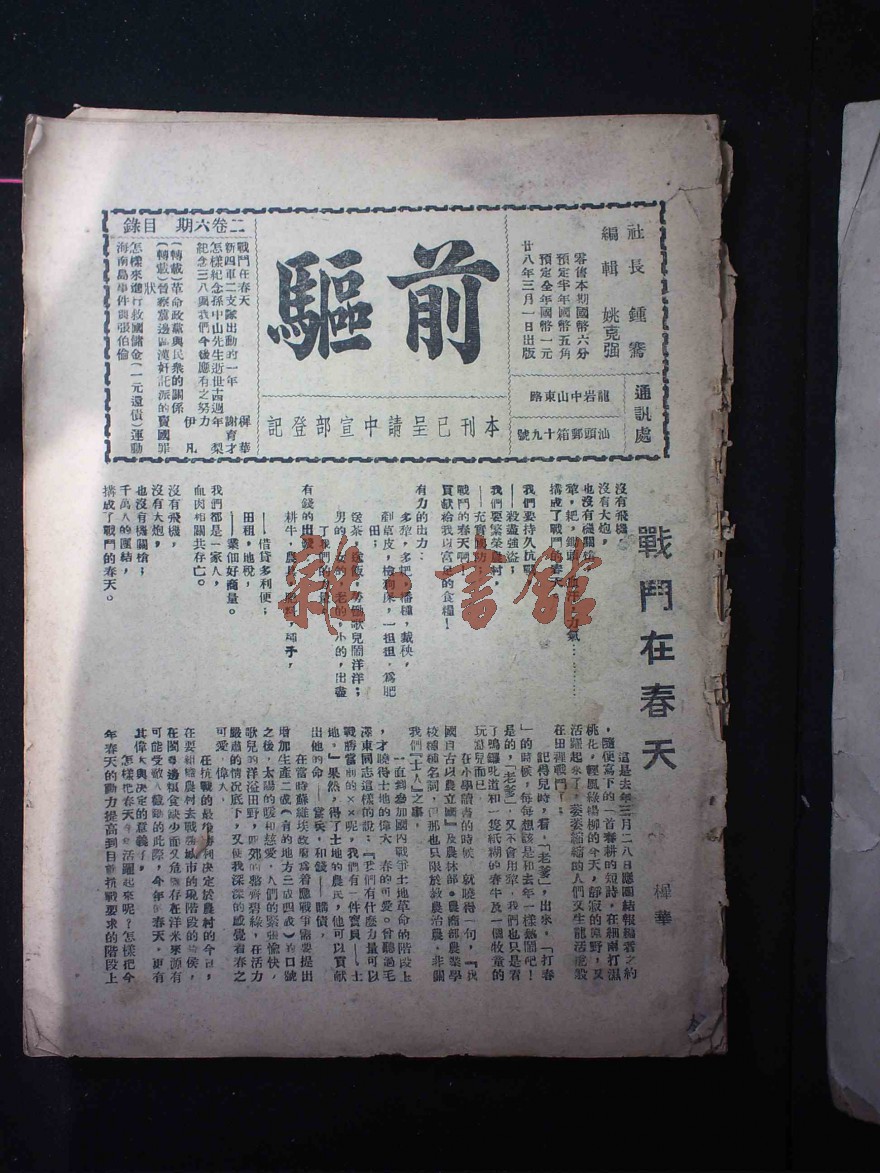 前驅
社長 鍾騫
編輯 姚克强
零售本期國幣六分
預定半年國幣五角
預定全年國幣一元
廿八年三月一日出版
通訊處
龍岩中山東路
汕頭郵箱十九號
本刊已呈請中宣部登記
二卷六期 目錄
戰鬥在春天 樨華
新四軍二支隊出動的一年 謝育才
怎樣紀念孫中山先生逝世十四週年 梨
紀念三八與我們今後應有之努力 伊凡
(轉載)革命政黨與民衆的關係
(轉載)晉察冀邊區漢奸託派的賣國罪狀
怎樣來進行救國儲金(一元還債)運動
海南島事件與張伯倫
戰鬥在春天
樨華
沒有飛機,
沒有大炮,
也沒有機關槍,
構成了戰鬥的春天
我們要持久抗戰
——殺盡強盜;
我們要繁榮農村,
——充實國防;
戰鬥的春天啊
貢獻給我以富足的食糧!
有力的出力:
多犂,多耙,播種,蒔秧,
一担担,爲肥
田;
送茶,送飯,勞働歌兒鬧洋洋;
男的,女的,老的,小的,出盡
有錢的出錢
耕牛,農具,肥料,種子,
——借貸多利便;
田租,地稅,
——業佃好商量。
我們都是一家人,
血肉相關共存亡。
沒有飛機,
沒有大炮,
也沒有機關槍;
千萬人的團結,
構成了戰鬥的春天。
這是去年三月二八日應團結報編者之約
,隨便寫下的一首春耕的短詩,在細雨打濕
桃花,輕風綠楊柳的今天,靜寂的原野,又
活躍起來了,萎萎縮縮的人們又生龍活虎般
在田裡戰鬥了;
記得兒時,看,「老爹」出來,「打春
」的時候,每每想該是和去年一樣熱鬧吧!
是的,「老爹」又不會用犂,我們也只是看
了鳴鑼吆道和一隻紙糊的春牛及一個牧童的
玩意兒而已
在小學讀書的時候,就曉得一句,『我
國自古以農立國』及農林部。農商部農業學
校種種名詞,但那也只限於敎農治農,非關
我們『士人』之事,
一直到參加國內戰爭土地革命的階段上
,才曉得土地的偉大,春的可愛。曾聽過毛
澤東同志這樣的說:『我們有什麽力量可以
戰勝當前的××呢,我們有一件寶貝——土
地。』果然,得了土地的農民,他可以貢獻
出他的命——當兵,和錢——購債,
在當時蘇維埃政府爲着應戰爭需要提出
增加生產二成(有的地方三成四成)的口號
之後,太陽的暖和慈愛,人們的緊張愉快,
歌兒的洋溢田野,四郊的整齊碧綠,在活力
嚴肅的情況底下,又使我深深的感覺着春之
可愛,偉大,
在抗戰的最後勝利決定於農村的今日,
在要組織農村去戰勝城市的現階段的時候,
在閩粤邊糧食缺少而又危險存在洋米來源有
可能受敵人截斷的此際,今年的春天,更有
其偉大與決定的意義了。
怎樣把春天今年活躍起來呢?怎樣把今
年春天的動力提高到目前抗戰要求的階段上
雜·書館